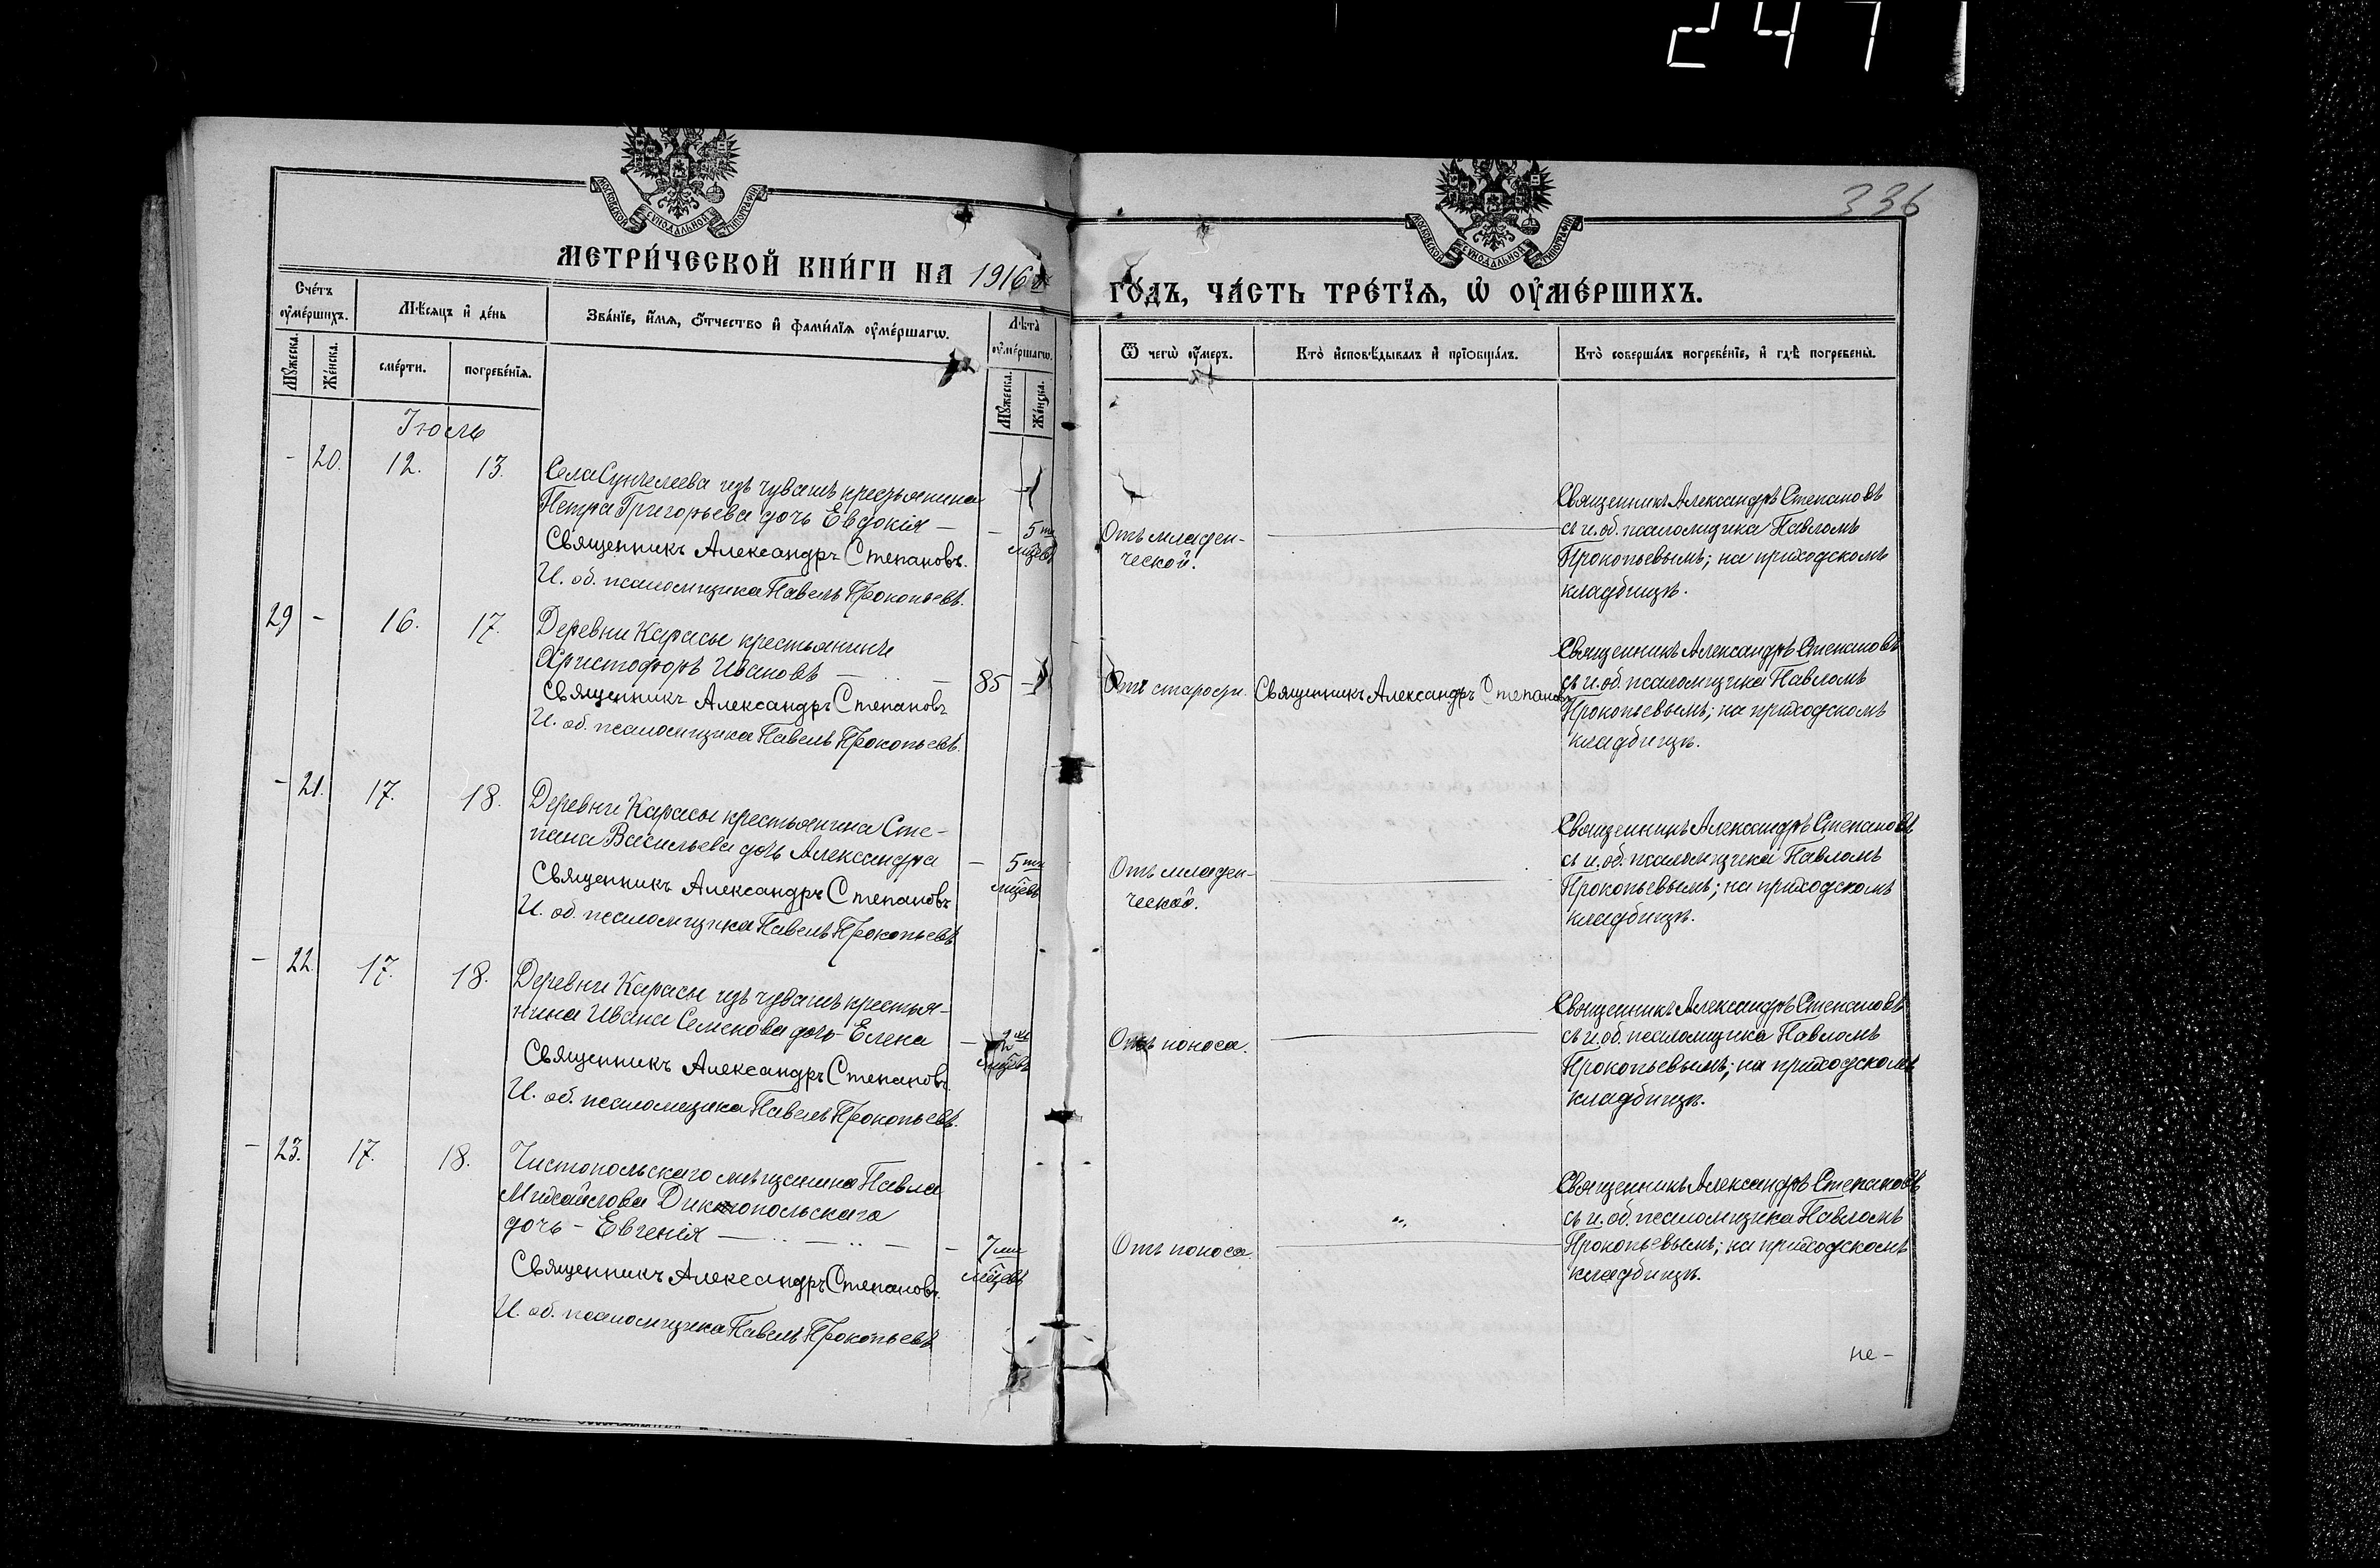 247
МОСКОВСКОЙ СѴНОДАЛЬНОЙ ТИПОГРАФІИ
МОСКОВСКОЙ СѴНОДАЛЬНОЙ ТИПОГРАФІИ
336
МЕТРИ́ЧЕСКОЙ КНИ́ГИ НА 1916 й
ГО́ДЪ, ЧА́СТЬ ТРЕ́ТІѦ, Ѽ ОУ҆МЕ́РШИХЪ.
Сче́тъ оу҆ме́ршихъ.
Мѣ́сяцъ и҆ де́нь
Зва́нїе, и҆́мѧ, ѻ҆́тчество и҆ фами́лїѧ оу҆ме́ршагѡ.
Лѣ́та оу҆ме́ршагѡ.
Мꙋ́жеска.
Же́нска.
сме́рти.
погребе́нїѧ.
Мꙋ́жеска.
Же́нска.
Ѿ чегѡ̀ оу҆́меръ.
Кто̀ и҆сповѣ́дывалъ и҆ прїѡбща́лъ.
Кто̀ соверша́лъ погребе́нїе, и҆ гдѣ̀ погребены̀.
Іюль
- 20. 12. 13.
Села Сунчелеева изъ чувашъ крестьянина
Петра Григорьева дочь Евдокія —
Священникъ Александръ Степановъ.
И. об. псаломщика Павелъ Прокопьевъ.
- 5ти
мцевъ
Отъ младен-
ческой.
Священникъ Александръ Степановъ
съ и. об. псаломщика Павломъ
Прокопьевымъ; на приходскомъ
кладбищѣ.
29 - 16. 17.
Деревни Карасы крестьянинъ
Христофоръ Ивановъ —
Священникъ Александръ Степановъ
И. об. псаломщика Павелъ Прокопьевъ.
85 -
Отъ старости.
Священникъ Александръ Степановъ
Священникъ Александръ Степановъ
съ и. об. псаломщика Павломъ
Прокопьевымъ; на приходскомъ
кладбищѣ.
- 21. 17. 18.
Деревни Карасы крестьянина Сте-
пана Васильева дочь Александра
Священникъ Александръ Степановъ
И. об. псаломщика Павелъ Прокопьевъ
- 5ти
мцевъ
Отъ младен-
ческой.
Священникъ Александръ Степановъ
съ и. об. псаломщика Павломъ
Прокопьевымъ; на приходскомъ
кладбищѣ.
- 22. 17. 18.
Деревни Карасы изъ чувашъ крестья-
нина Ивана Семенова дочь Елена
Священникъ Александръ Степановъ.
И. об. псаломщика Павелъ Прокопьевъ.
мцевъ
Отъ поноса.
Священникъ Александръ Степановъ
съ и. об. псаломщика Павломъ
Прокопьевымъ; на приходскомъ
кладбищѣ.
- 23. 17. 18.
Чистопольскаго мѣщанина Павла
Михайлова Диктопольскаго
дочь - Евгенія —
Священникъ Александръ Степановъ.
И. об. псаломщика Павелъ Прокопьевъ
- 7ми
мцевъ
Отъ поноса.
Священникъ Александръ Степановъ
съ и. об. псаломщика Павломъ
Прокопьевымъ; на приходскомъ
кладбищѣ.
не-